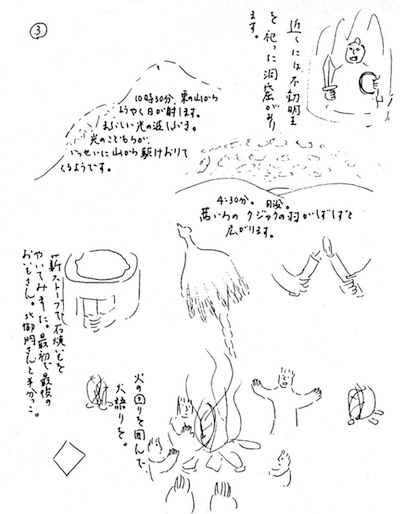 ③
近くには、不動明王
を祀った洞窟があり
ます。
10時30分、東の山から
ようやく日が射します。
まぶしい光の遊んでいます。
光のこどもらが、
いっせいに山から駆けおりて
くるようです。
4:30分。日没。
茜いろのクジャクの羽がしずしずと
広がります。
薪ストーブで、石焼いもを
やいてみました。最初で最後の
おいもさん。北御門さんと半分っこ。
火の回りを囲んで、
火語りを。